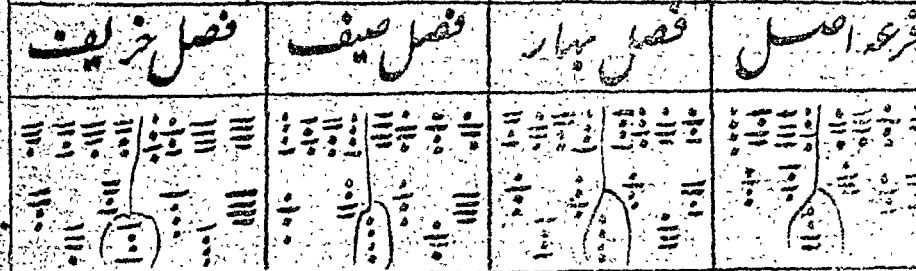 قرعه اصل فصل بهار فصل صيف فصل خريف